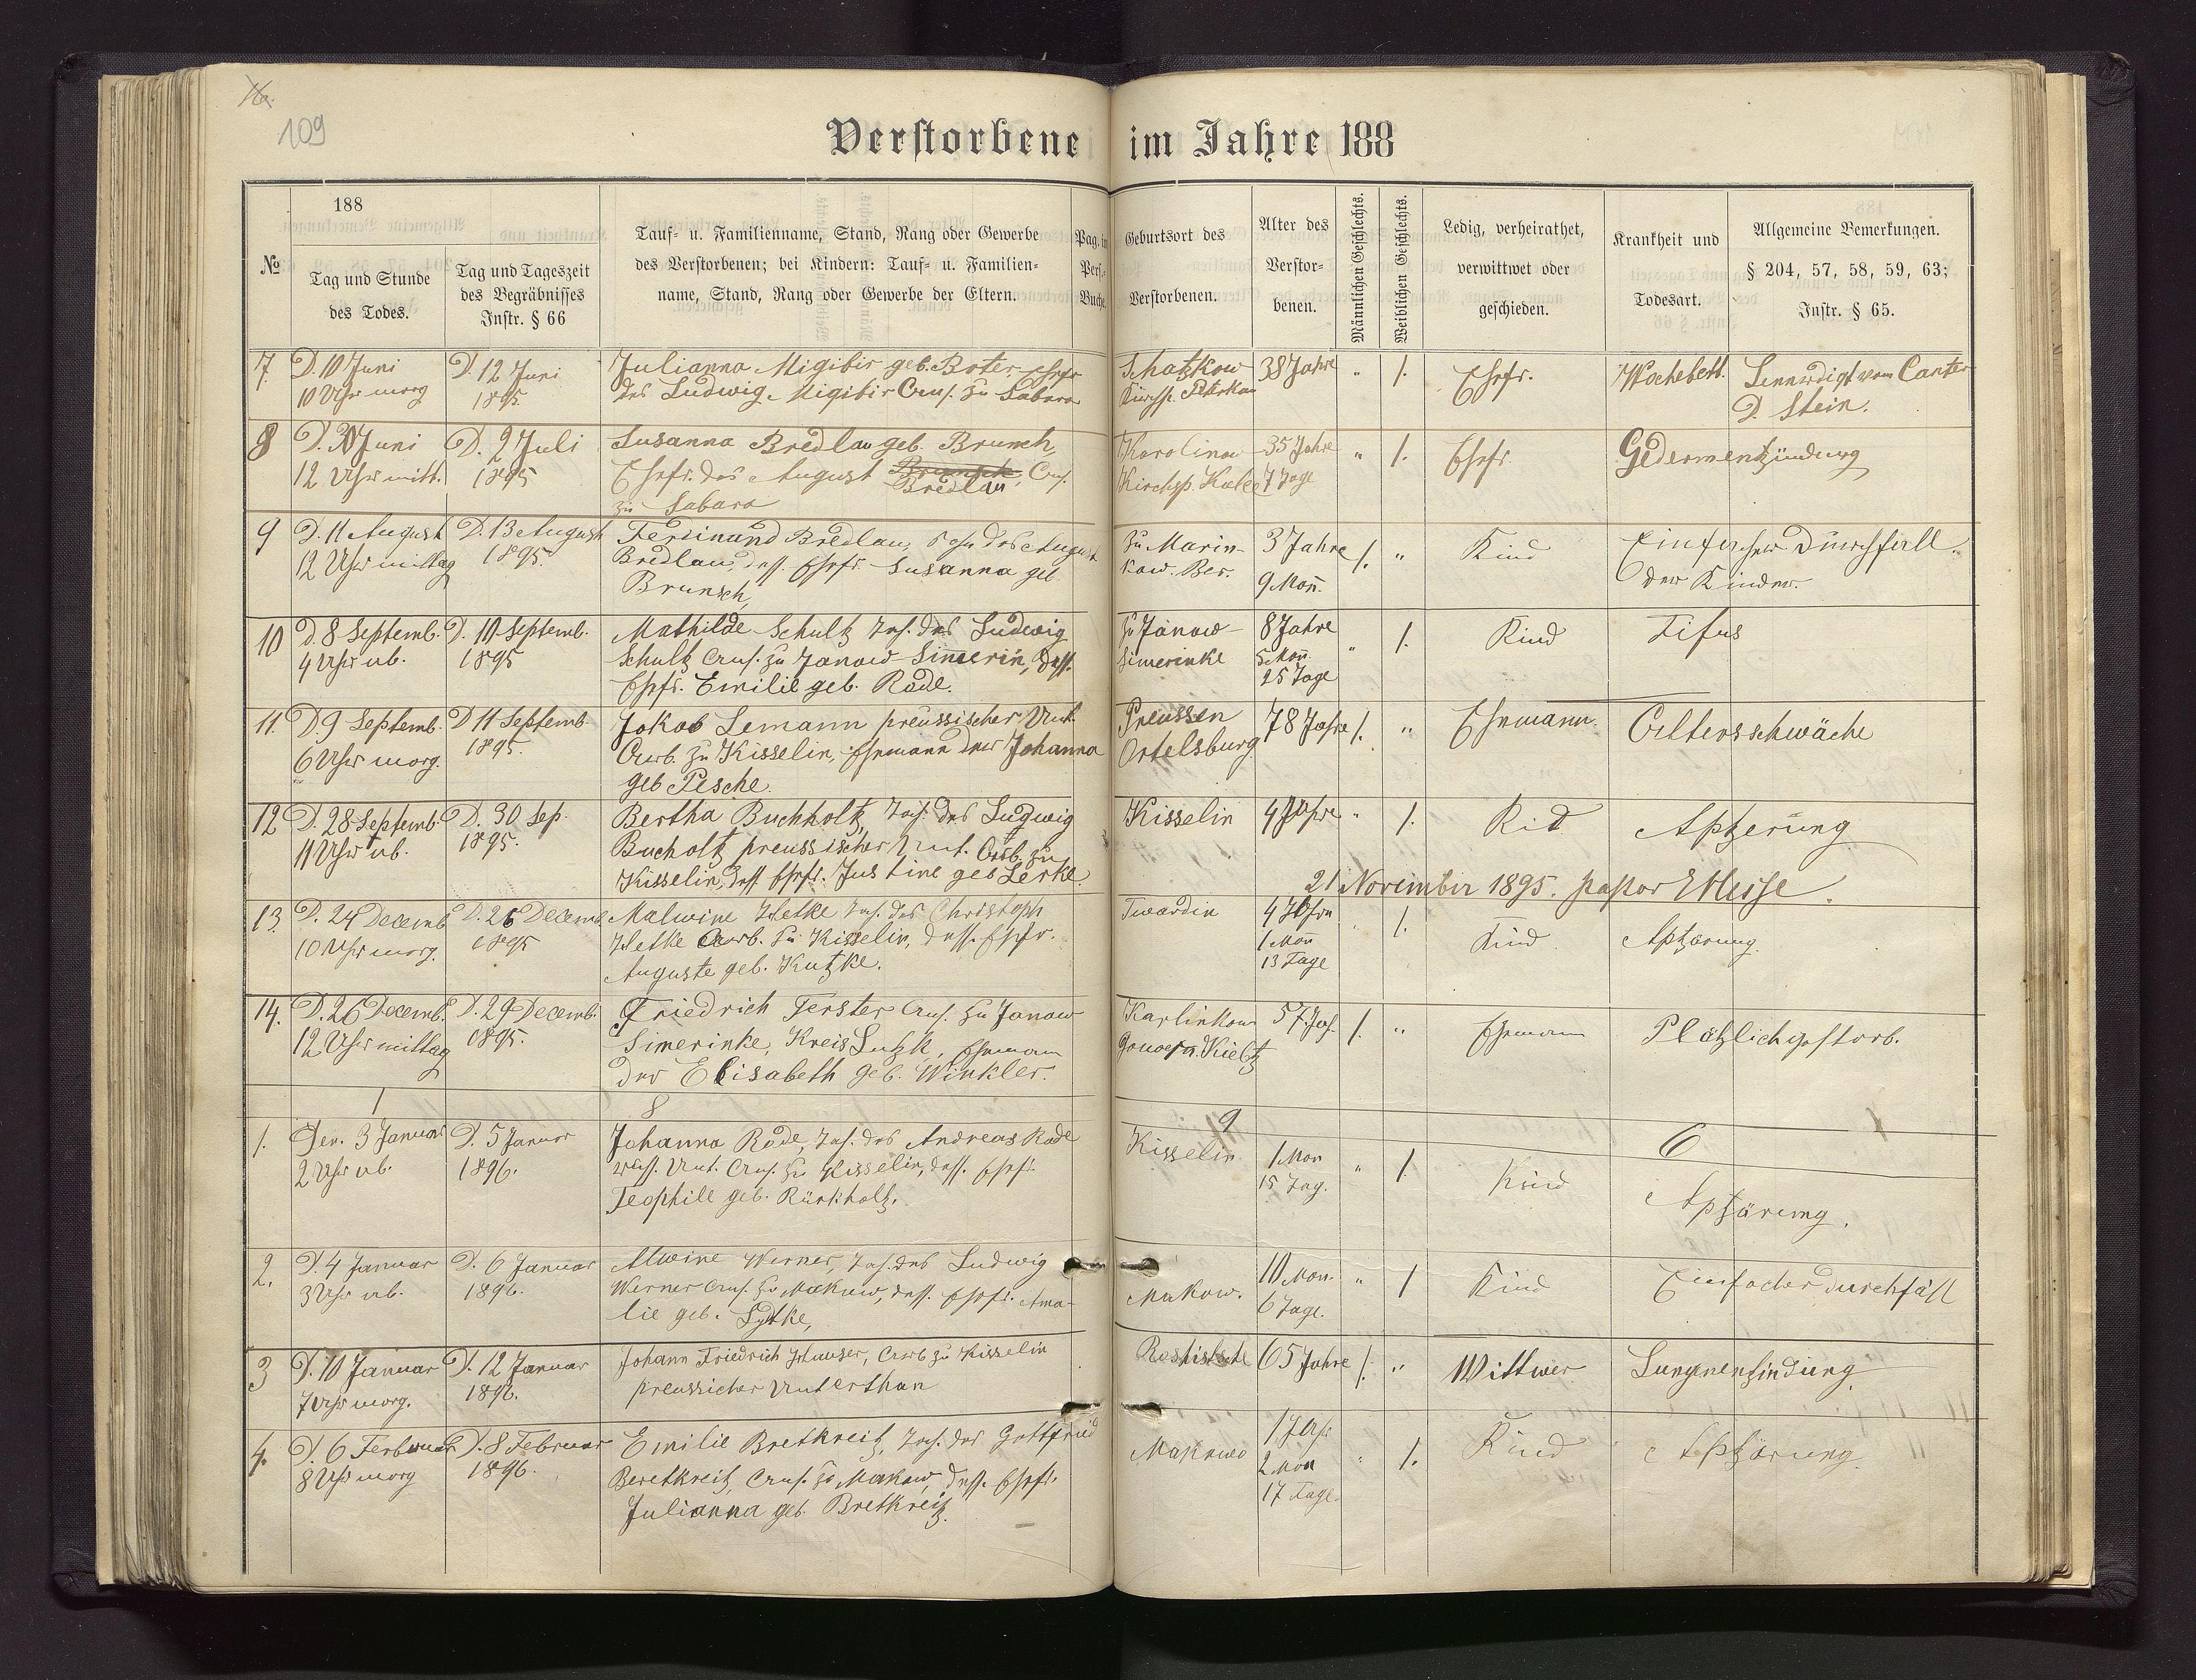 109
Verstorbene im Jahre 188
188
№
Tag und Stunde
des Todes.
Tag und Tageszeit
des Begräbnisses
Instr. § 66
Tauf- u. Familienname, Stand, Rang oder Gewerbe
des Verstorbenen; bei Kindern: Tauf- u. Familien-
name, Stand, Rang oder Gewerbe der Eltern.
Pag. im
Pers.-
Buche.
Geburtsort des
Verstorbenen.
Alter des
Verstor-
benen.
Männlichen Geschlechts.
Weiblichen Geschlechts.
Ledig, verheirathet,
verwittwet oder
geschieden.
Krankheit und
Todesart.
Allgemeine Bemerkungen.
§ 204, 57, 58, 59, 63;
Instr. § 65.
7.
D. 10 Juni
10 Uhr morg
D. 12 Juni
1895.
Julianna Migibir geb. Boter Ehefr
des Ludwig Migibir zu Sabara
Schatzkow
Petrkau
38 Jahre
" 1.
Ehefr.
Wochebett.
vom Cantor
D. Stein.
8
D. 30 Juni
12 Uhr mitt.
D. 2 Juli
1895
Susanna Bredlau geb. Brunsch,
Ehefr. des August Brunsch,
Bredlau
zu Sabara
Karolinow
Kirchsp.
35 Jahre
7 Tage
" 1.
Ehefr
Gedermentzündung
9
D. 11 August
12 Uhr mittag
D. 13 August
1895.
Ferdinand Bredlau, Sohn des August
Bredlau, dess. Ehefr. Susanna geb
Brunsch,
zu Marin-
kow. Bes.
3 Jahre
9 Mon.
1. "
Kind
Einfacher Durchfall
der Kinder.
10
D. 8 Septemb.
4 Uhr ab.
D. 10 Septemb.
1895
Mathilde Schultz Toch. des Ludwig
Schultz zu Janow-Simerin, dess.
Ehefr. Emilie geb. Rode.
zu Janow-
Simerinke
8 Jahre
5 Mon.
25 Tage
" 1.
Kind
Tifus
11.
D. 9 Septemb.
6 Uhr morg.
D 11 Septemb.
1895.
Jakob Lemann preussischer Unt.
zu Kisselin, Ehemann der Johanna
geb Pesche.
Preussen
Ortelsburg
78 Jahre
1. "
Ehemann.
Altersschwäche
12
D. 28 Septemb.
11 Uhr ab.
D. 30 Sep.
1895.
Bertha Buchholtz, Toch. des Ludgwig
Bucholtz preussischer Unt. zu
Kisselin, dess Ehefr. Justine geb Lerke.
Kisselin
4 Jahre
" 1.
Kid
Aptzerung
21 November 1895. Pastor EHesse.
13.
D. 24 Decemb
10 Uhr morg.
D. 26 Decemb.
1895
Malwine Toch. des Christoph
zu Kisselin, dess. Ehefr.
Auguste geb. Kutzke.
Twardin
4 Jahre
1 Mon
13 Tage
" 1.
Kind
Aptzerung
14.
D. 26 Decemb.
12 Uhr mittag
D. 29 Decemb.
1895.
Friedrich Ferster zu Janow
Simerinke, Kreis Lutzk, Ehemann
der Elisabeth geb. Winkler.
Karlinkow
Kieltz
57 Jah.
1. "
Ehemann
Plötzlich gestorb.
1
8
9
6
1.
Den. 3 Januar
2 Uhr ab.
D. 5 Januar
1896.
Johanna Rode, Toch. des Andreas Rode
Unt. zu Kisselin, dess. Ehefr.
Teophile geb. Rürkholtz.
Kisselin
1 Mon
15 Tag.
" 1.
Kind
Aptzärung.
2.
D. 4 Januar
3 Uhr ab.
D. 6 Januar
1896.
Alwine Werner, Toch. des Ludwig
Werner zu Makow, dess. Ehefr. Ama-
lie geb. Lytke,
Makow.
10 Mon.
6 Tage.
" 1
Kind
Einfacher durchfall
3
D. 10 Januar
7 Uhr morg.
D. 12 Januar
1896.
Johann Friedrich zu Kisselin
preussicher Unterthan
65 Jahre
1. "
Wittwer
Lungnenzindung
4.
D. 6 Ferbruar
8 Uhr morg
D. 8 Februar
1896.
Emilie Bretkreitz, Toch. des Gottfried
Beretkreitz, zu Makow, dess. Ehefr.
Julianna geb. Bretkreitz.
Makowo
1 Jahr
2 Mon
17 Tage.
" 1.
Kind
Aptzärung